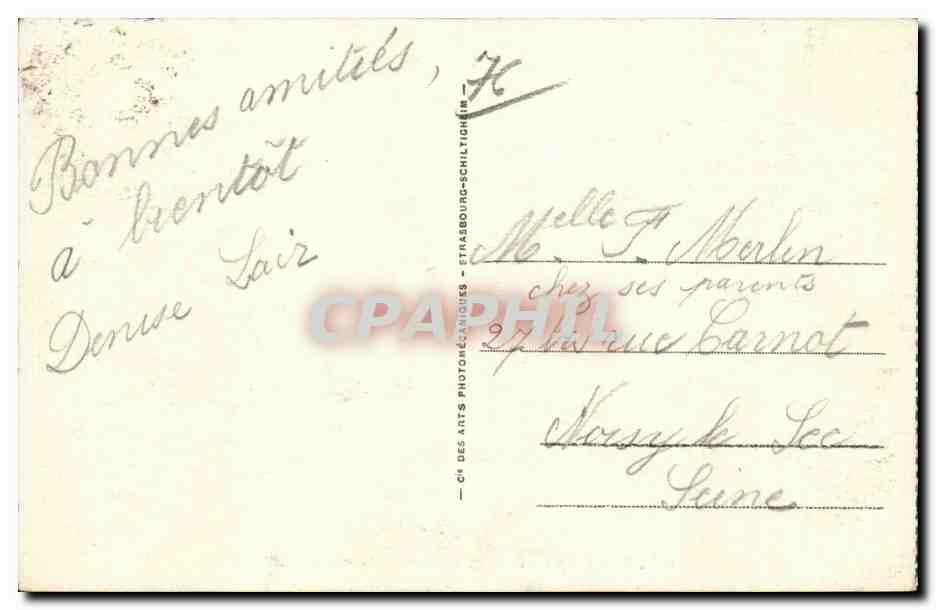 Bonnes amitiés,
à bientôt
Denise Lair
Cie DES ARTS PHOTOMÉCANIQUES - STRASBOURG-SCHILTIGHEIM
Melle F. Merlin
chez ses parents
27 bis rue Carnot
Noisy le Sec
Seine
CPAPHIL